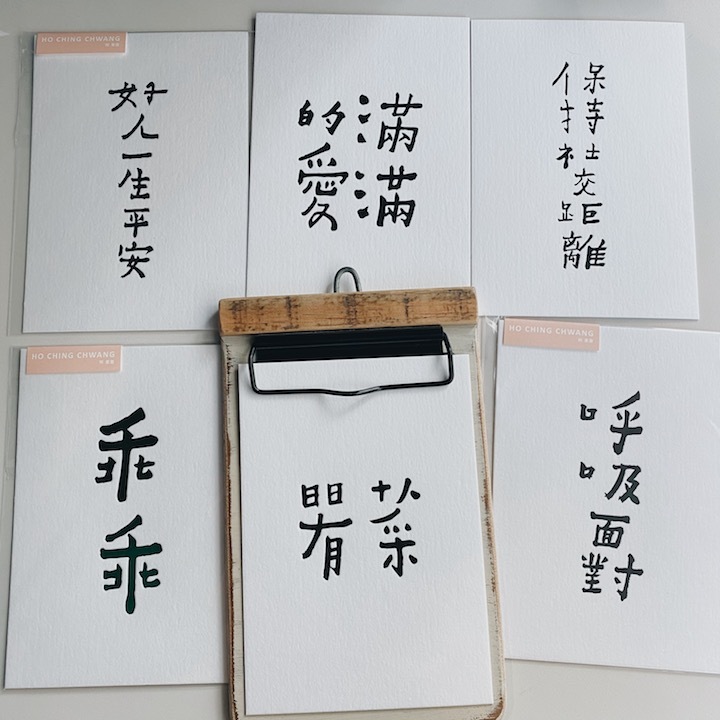 HO CHING CHWANG
好人一生平安
滿滿
的愛
保持社交距離
HO CHING CHWANG
乖乖
HO CHING CHWANG
呼吸
面對